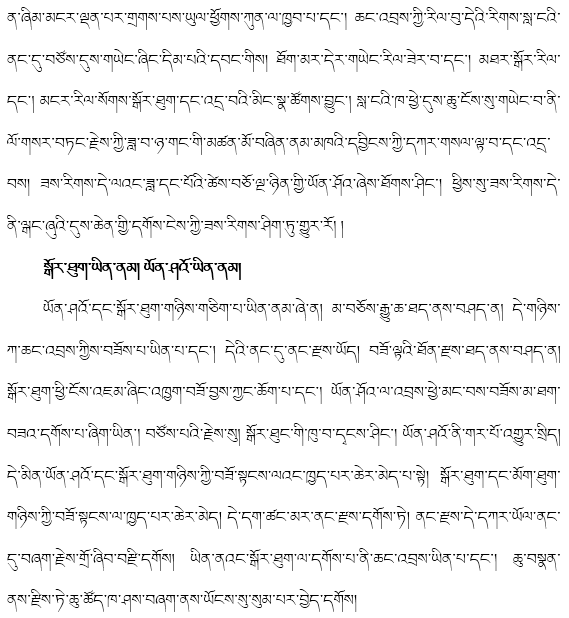 ན་ཞིམ་མངར་ལྡན་པར་གྲགས་པས་ཡུལ་ཕྱོགས་ཀུན་ལ་ཁྱབ་པ་དང་། ཆང་འབྲས་ཀྱི་རིལ་བུ་དེའི་རིགས་སླ་ངའི་
ནང་དུ་བཙོས་དུས་གཡེང་ཞིང་དིམ་པའི་དབང་གིས། ཐོག་མར་དེར་གཡེང་རིལ་ཟེར་བ་དང་། མཐར་སྒོར་རིལ་
དང་། མངར་རིལ་སོགས་སྒོར་ཐུག་དང་འདྲ་བའི་མིང་སྣ་ཚོགས་བྱུང་། སླ་ངའི་ཁ་ཕྱེ་དུས་ཆུ་ངོས་སུ་གཡེང་བ་ནི་
ལོ་གསར་བཏང་རྗེས་ཀྱི་ཟླ་བ་ཉ་གང་གི་མཚན་མོ་བཞིན་ནམ་མཁའི་དབྱིངས་ཀྱི་དཀར་གསལ་ལྟ་བ་དང་འདྲ་
བས། ཟས་རིགས་དེ་ལའང་ཟླ་དང་པོའི་ཚེས་བཅོ་ལྔ་ཉིན་གྱི་ཡོན་ཤོའ་ཞེས་ཐོགས་ཤིང་། ཕྱིས་སུ་ཟས་རིགས་དེ་
ནི་ལྐང་ཞུའི་དུས་ཆེན་གྱི་དགོས་ངེས་ཀྱི་ཟས་རིགས་ཤིག་ཏུ་གྱུར་རོ། །
སྒོར་ཐུག་ཡིན་ནམ། ཡོན་ཤའོ་ཡིན་ནམ།
ཡོན་ཤའོ་དང་སྒོར་ཐུག་གཉིས་གཅིག་པ་ཡིན་ནམ་ཞེ་ན། མ་བཅོས་རྒྱུ་ཆ་ཐད་ནས་བཤད་ན། དེ་གཉིས་
ཀ་ཆང་འབྲས་ཀྱིས་བཟོས་པ་ཡིན་པ་དང་། དེའི་ནང་དུ་ནང་རྫས་ཡོད། བཟོ་ལྟའི་ཐོན་རྫས་ཐད་ནས་བཤད་ན།
སྒོར་ཐུག་ཕྱི་ངོས་འཇམ་ཞིང་འཁྱག་བཟོ་བྱས་ཀྱང་ཆོག་པ་དང་། ཡོན་ཤོའ་ལ་འབྲས་ཕྱེ་མང་བས་བཟོས་མ་ཐག་
བཟའ་དགོས་པ་ཞིག་ཡིན། བཙོས་པའི་རྗེས་སུ། སྒོར་ཐུང་གི་ཁུ་བ་དྭངས་ཤིང་། ཡོན་ཤའོ་ནི་གར་པོ་འགྱུར་སྲིད།
དེ་མིན་ཡོན་ཤའོ་དང་སྒོར་ཐུག་གཉིས་ཀྱི་བཟོ་སྟངས་ལའང་ཁྱད་པར་ཆེར་མེད་པ་སྟེ། སྒོར་ཐུག་དང་མོག་ཐུག་
གཉིས་ཀྱི་བཟོ་སྟངས་ལ་ཁྱད་པར་ཆེར་མེད། དེ་དག་ཚང་མར་ནང་རྫས་དགོས་ཏེ། ནང་རྫས་དེ་དཀར་ཡོལ་ནང་
དུ་བཞག་རྗེས་གྲོ་ཞིབ་བརྫི་དགོས། ཡིན་ནའང་སྒོར་ཐུག་ལ་དགོས་པ་ནི་ཆང་འབྲས་ཡིན་པ་དང་། ཆུ་བསྣན་
ནས་རྫིས་ཏེ་ཆུ་ཚོད་ཁ་ཤས་བཞག་ནས་ཡོངས་སུ་སུམ་པར་བྱེད་དགོས།